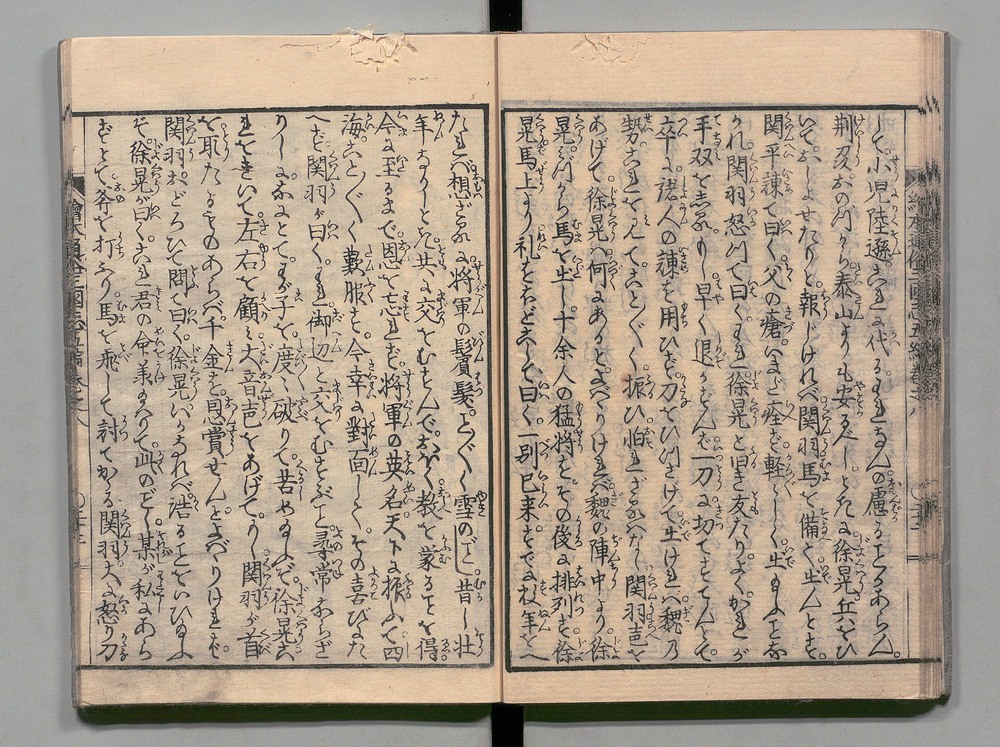 して。小児陸遜。これに代るとも。なんの慮ることかあらん。
荊刕おのづから泰山よりも安るべし。ときに徐晃兵をひ
いておしよせたりと。報じければ関羽馬を備て生んとす。
関平諫て曰く。父の瘡いまだ痊ず軽しく生ることな
かれ関羽怒つて曰くわれ徐晃と旧き友たりよくかれが
手双をしれりもし早く退かずんば一刀に切てすてんとて
卒に諸人の諫を用ひず。刀をひつさげて生ければ魏乃
勢これをみて。ことごとく振ひ怕れざるはなし。関羽声を
あげて。徐晃何にあると。よばゝりければ魏の陣中より。徐
晃づから馬を生し十余人の猛将をその後に排列す。徐
晃馬上より礼をほどこして曰く一別已来すでに数年をへ
たれば想ざるに将軍の鬢髪ことごとく雪のごとし昔し壮
年なりしとき共に交をむすんで。おほく教を蒙ることを得
今に至るまで恩を忘れず。将軍の英名天下に振ふて四
海ことごとく歎服す。今幸に対面して。その喜びにた
へず関羽が曰く。われ御辺と交をむすぶこと尋常ならざ
りし。なにとてわが子を度々破りて。苦やるぞ。徐晃こ
れをきいて左右を顧み大音声をあげて。もし関羽が首
を取たるものあらば千金を恩賞せんと。よばゝりければ。
関羽おどろひて問て曰く。徐晃いかなれば浩ることをいひ給ふ
ぞ。徐晃が曰く。これ君の命を蒙りて此のごとし。某が私にあら
ずとて。斧を打ふり馬を飛して討てかゝる関羽大に怒り刀